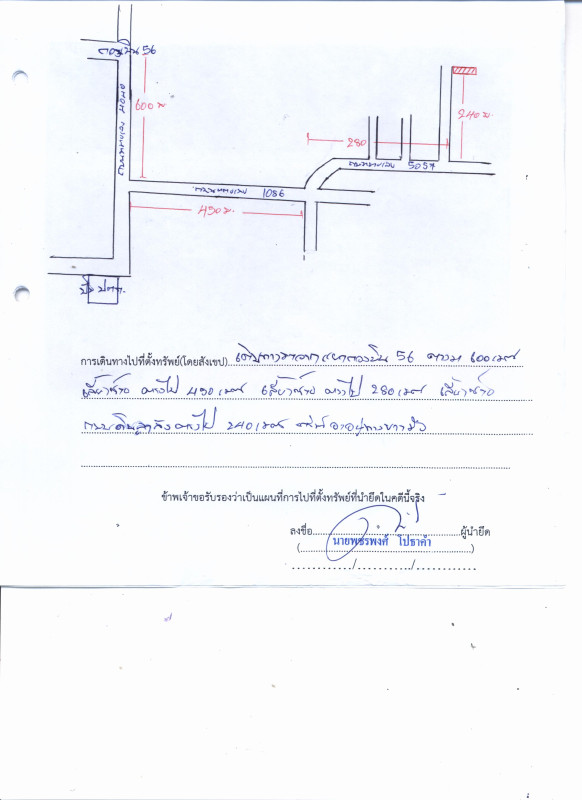 56
600 ม.
240 ม.
280
5057
1086
450 ม.
ปั๊ม ปตท.
การเดินทางไปที่ตั้งทรัพย์(โดยสังเขป) เดินทางจากแยก 56 ตรงมา 600 เมตร
เลี้ยวซ้าย ตรงไป 450 เมตร เลี้ยวซ้าย ตรงไป 280 เมตร เลี้ยวซ้าย
ถนนดินลูกรังตรงไป 240 เมตร ทรัพย์อยู่ทางขวามือ
ข้าพเจ้าขอรับรองว่าเป็นแผนที่การไปที่ตั้งทรัพย์ที่นำยึดในคดีนี้จริง
ลงชื่อ ผู้นำยึด
(นายพชรพงศ์ โปธาคำ)
/ /